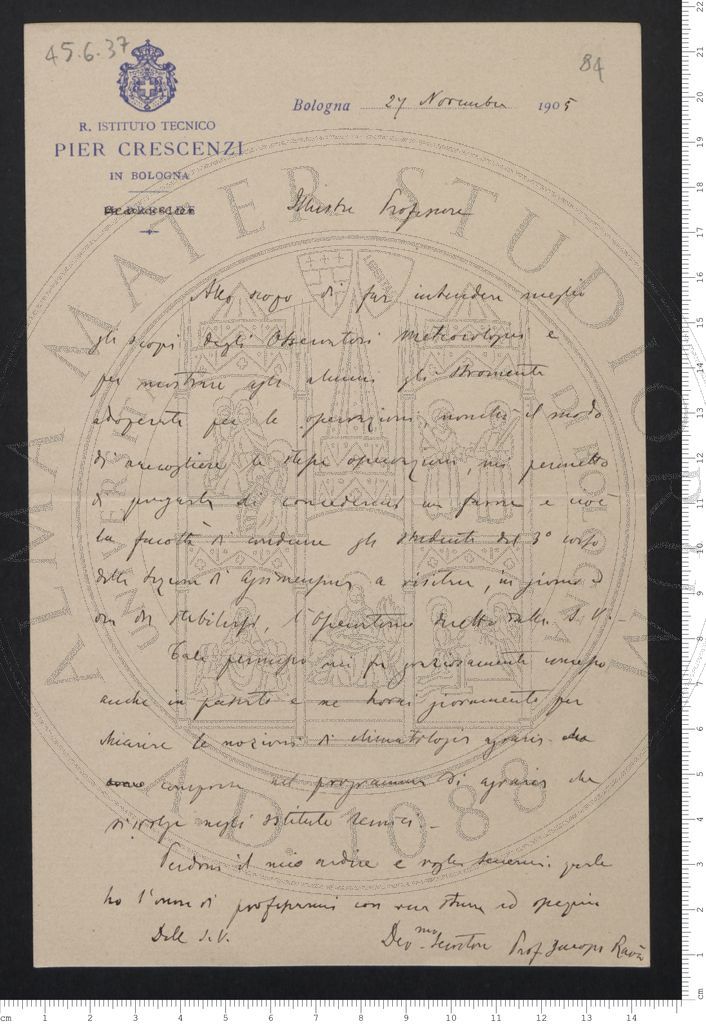 45.6.37
84
Bologna 27 Novembre 1905
R. ISTITUTO TECNICO
PIER CRESCENZI
IN BOLOGNA
Illustre Professore
Allo scopo di far intendere meglio
gli scopi degli Osservatori Meteorologici e
per mostrare agli alunni gli stromenti
adoperati per le operazioni, nonchè il modo
di raccogliere le stesse operazioni, mi permetto
di pregarla di concedermi un favore e cioè
la facoltà di condurre gli studenti del 3º corso
della sezione di Agrimensura a visitare, in giorno ed
ora da stabilirsi, l'Osservatorio diretto dalla S. V. -
Tale permesso mi fu graziosamente concesso
anche in passato e ne trovai giovamento per
chiarire le nozioni di climatologia agraria che
sono comprese nel programma di agraria che
si svolge negli Istituti tecnici. -
Perdoni il mio ardire e voglia tenermi quale
ho l'onore di professarmi con vera stima ed ossequio
Della S. V.
Dev.mo Servitore Prof. Jacopo Ravà
ALMA MATER STUDIORUM
A.D. 1088